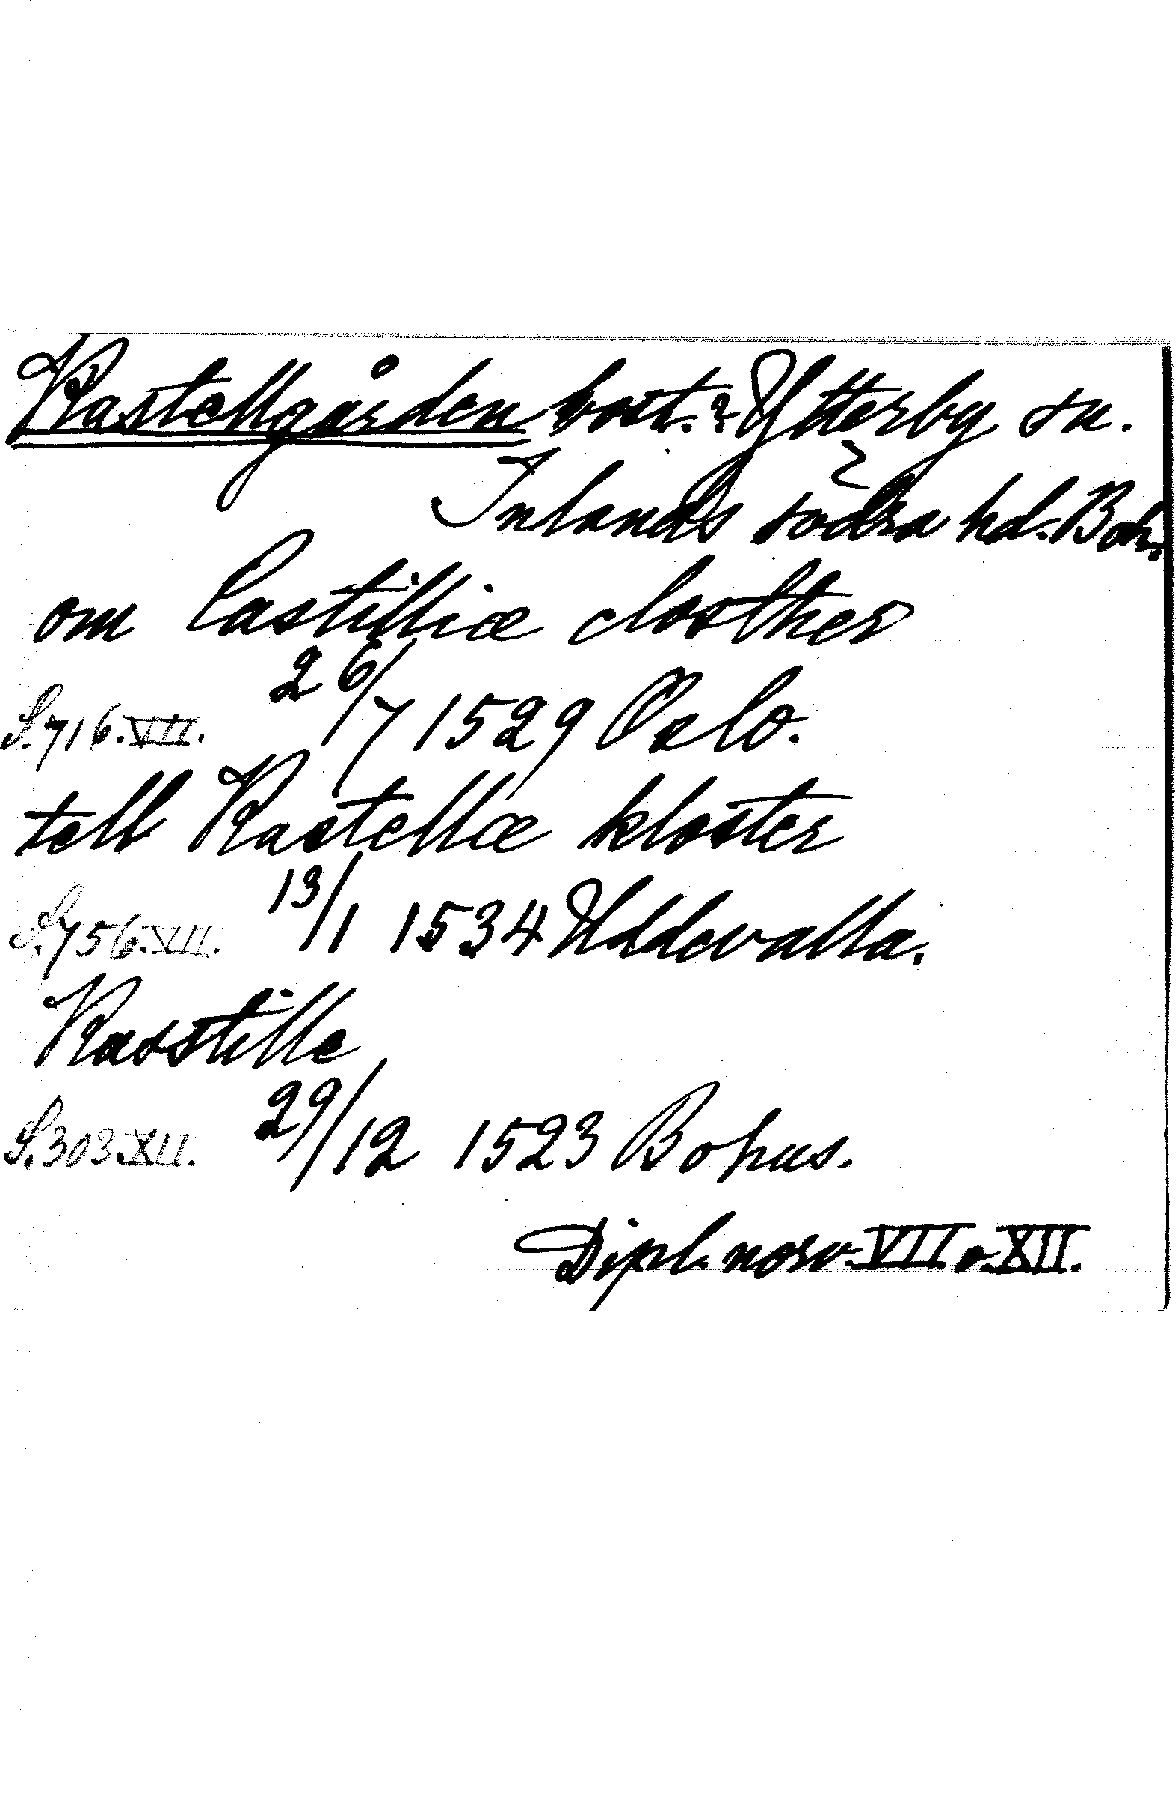 Kastellgården bost.? Ytterby sn.
Inlands södra hd. Boh.
om Castilliæ closther
S.716.VII. 26/7 1529 Oslo.
tell Kastellæ kloster
S.756.XII. 13/1 1534 Uddevalla.
Kasstille
S.303.XII. 29/12 1523 Bohus.
Dipl. norv. VII o. XII.